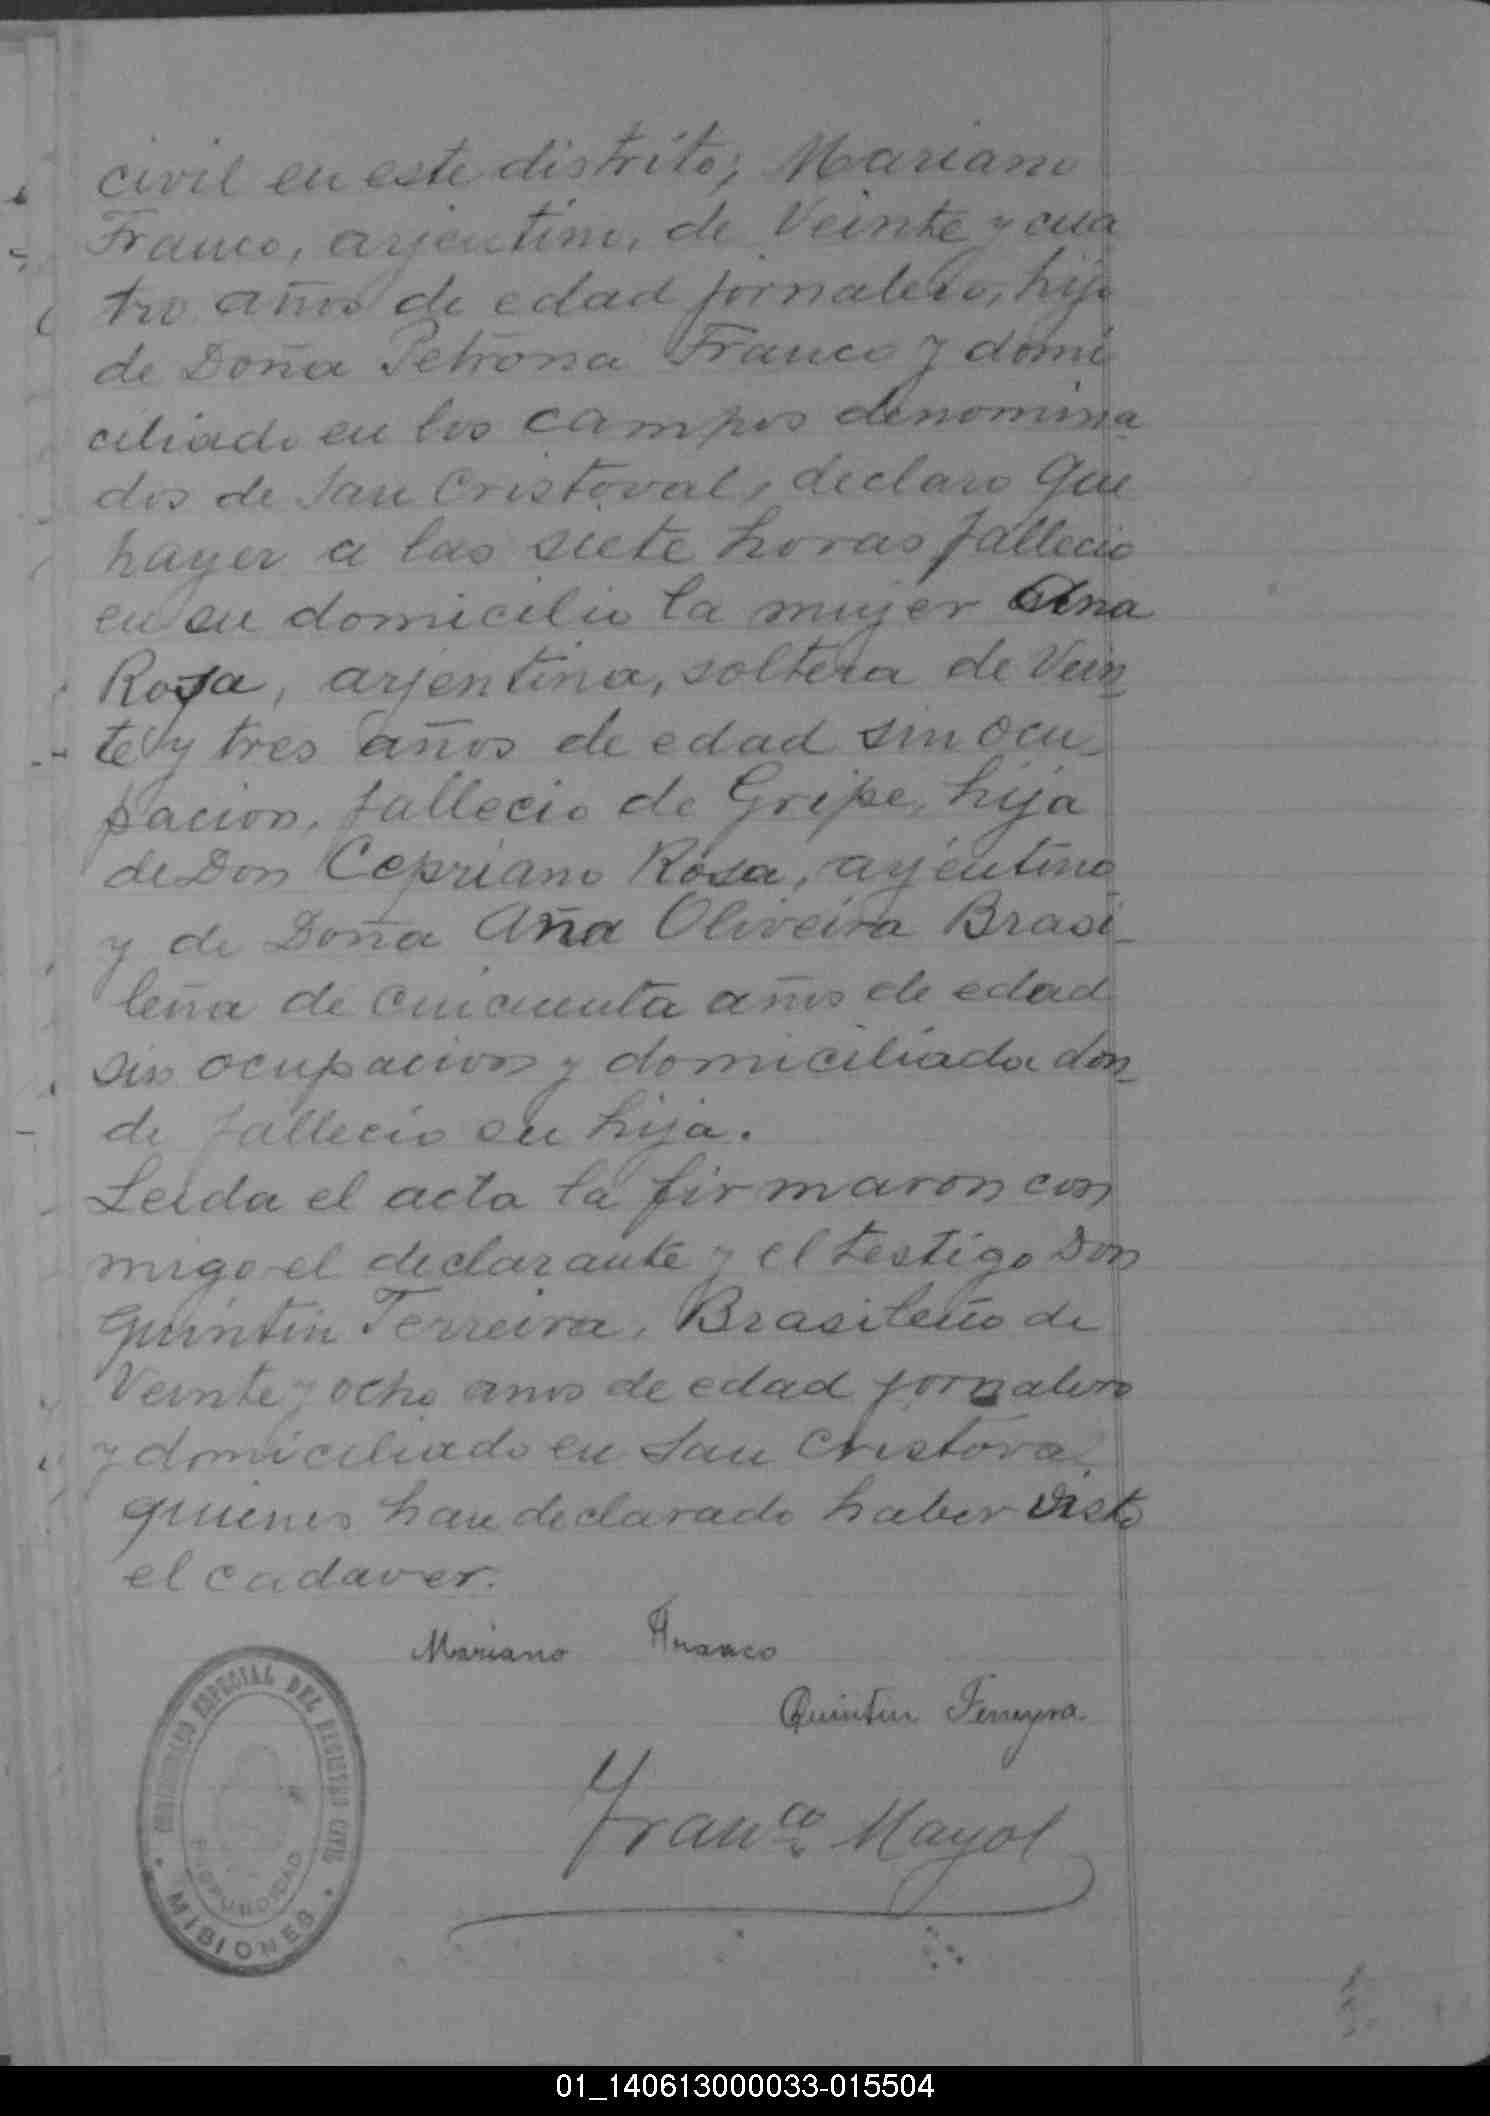 civil en este distrito; Mariano
Franco, arjentino, de Veinte y cua
tro años de edad jornalero, hijo
de Doña Petrona Franco y domi
ciliado en los campos denomina
dos de San Cristoval, declaro que
hayer a las siete horas fallecio
en su domicilio la mujer Ana
Rosa, arjentina, soltera de Vein
te y tres años de edad sin ocu_
pacion, fallecio de Gripe, hija
de Don Cepriano Rosa, arjentino
y de Doña Ana Oliveira Brasi_
leña de cincuenta años de edad
sin ocupacion y domiciliada don_
de fallecio su hija.
Leida el acta la firmaron con
migo el declarante y el testigo Don
Quintin Ferreira, Brasileño de
Veinte y ocho anos de edad jornalero
y domiciliado en San Cristoval
quienes han declarado haber visto
el cadaver.
Mariano Franco
Quintin Ferreyra
Franco Mayol
ESPECIAL DEL REGISTRO CIVIL
MISIONES
01_140613000033-015504